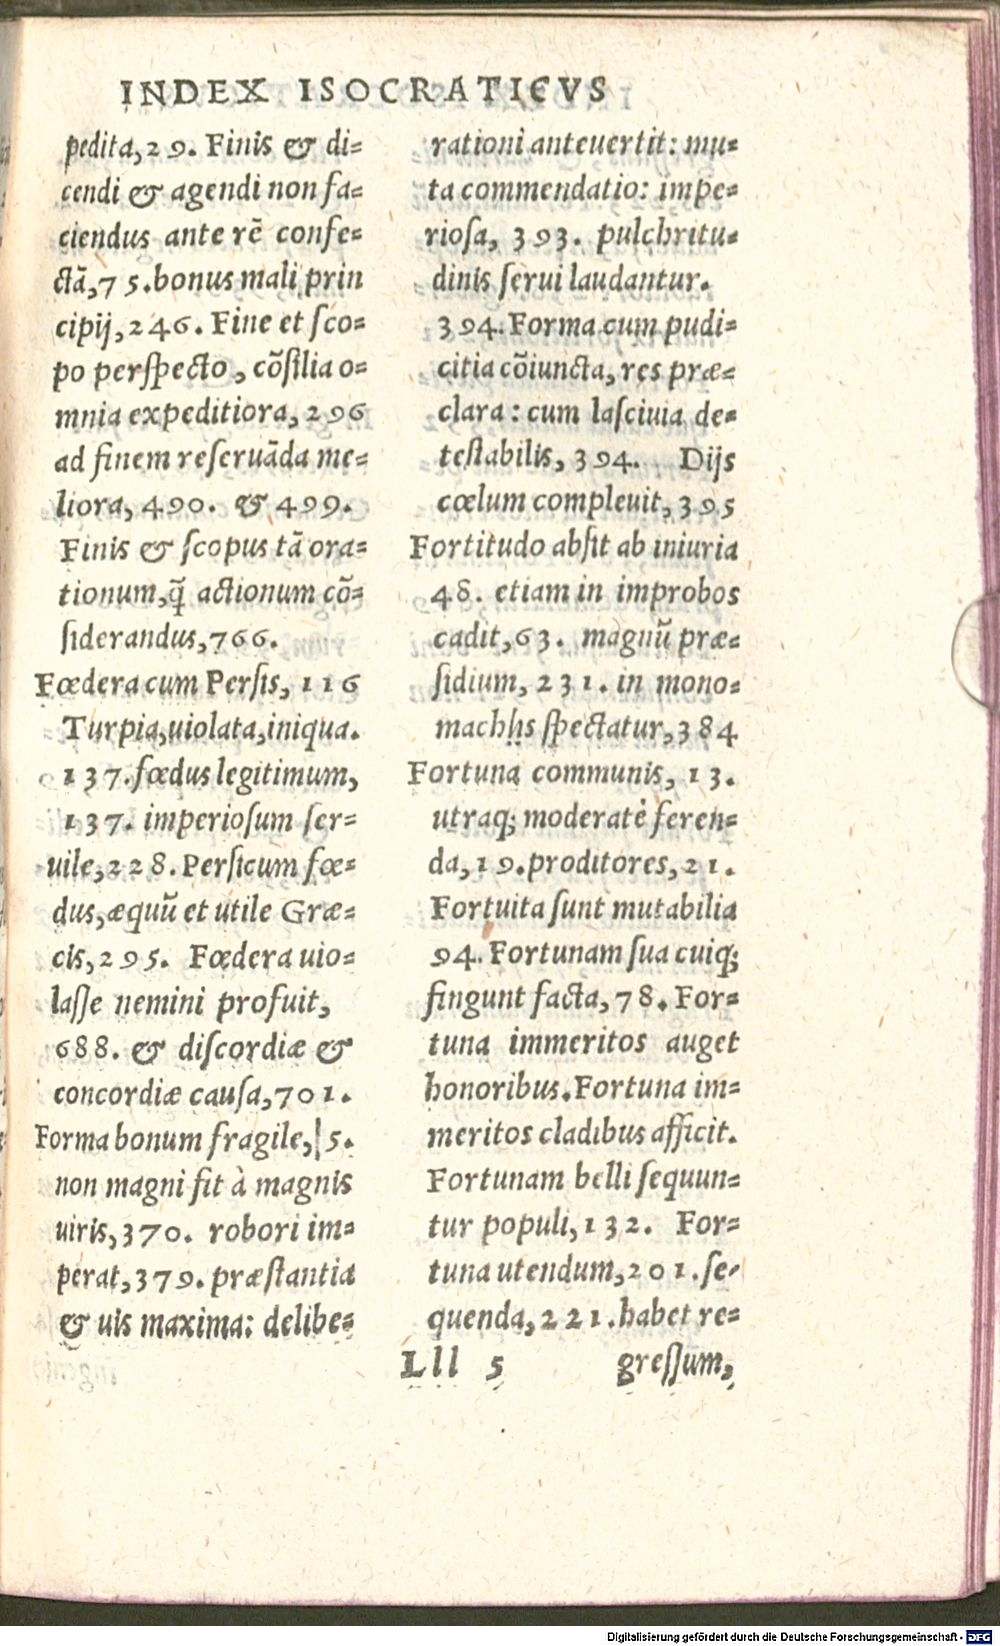 INDEX ISOCRATICVS
pedita,29. Finis & di=
cendi & agendi non fa=
ciendus ante rẽ confe=
ctã,75.bonus mali prin
cipij,246. Fine et ſco=
po perſpecto, cõſilia o=
mnia expeditiora, 296
ad finem reſeruãda me=
liora, 490. & 499.
Finis & ſcopus tã ora=
tionum,q̃ actionum cõ=
ſiderandus,766.
Fœdera cum Perſis, 116
Turpia,uiolata,iniqua.
137.fœdus legitimum,
137. imperioſum ſer=
uile,228.Perſicum fœ=
dus,æquũ et utile Græ=
cis,295. Fœdera uio=
laſſe nemini profuit,
688. & diſcordiæ &
concordiæ cauſa,701.
Forma bonum fragile, 5.
non magni fit à magnis
uiris,370. robori im=
perat,379. præſtantia
& uis maxima: delibe=
rationi anteuertit: mu=
ta commendatio: impe=
rioſa, 393. pulchritu=
dinis ſerui laudantur.
394. Forma cum pudi=
citia cõiuncta, res præ=
clara: cum laſciuia de=
teſtabilis, 394. Dijs
cœlum compleuit,395
Fortitudo abſit ab iniuria
48. etiam in improbos
cadit,63. magnũ præ=
ſidium, 231. in mono=
machijs ſpectatur,384
Fortuna communis, 13.
utraq; moderatè feren=
da,19.proditores,21.
Fortuita ſunt mutabilia
94. Fortunam ſua cuiq;
fingunt facta,78. For=
tuna immeritos auget
honoribus.Fortuna im=
meritos cladibus afficit.
Fortunam belli ſequun=
tur populi,132. For=
tuna utendum,201.ſe=
quenda,221.habet re=
Lll 5 greſſum,
Digitalisierung gefördert durch die Deutsche Forschungsgemeinschaft - DFG